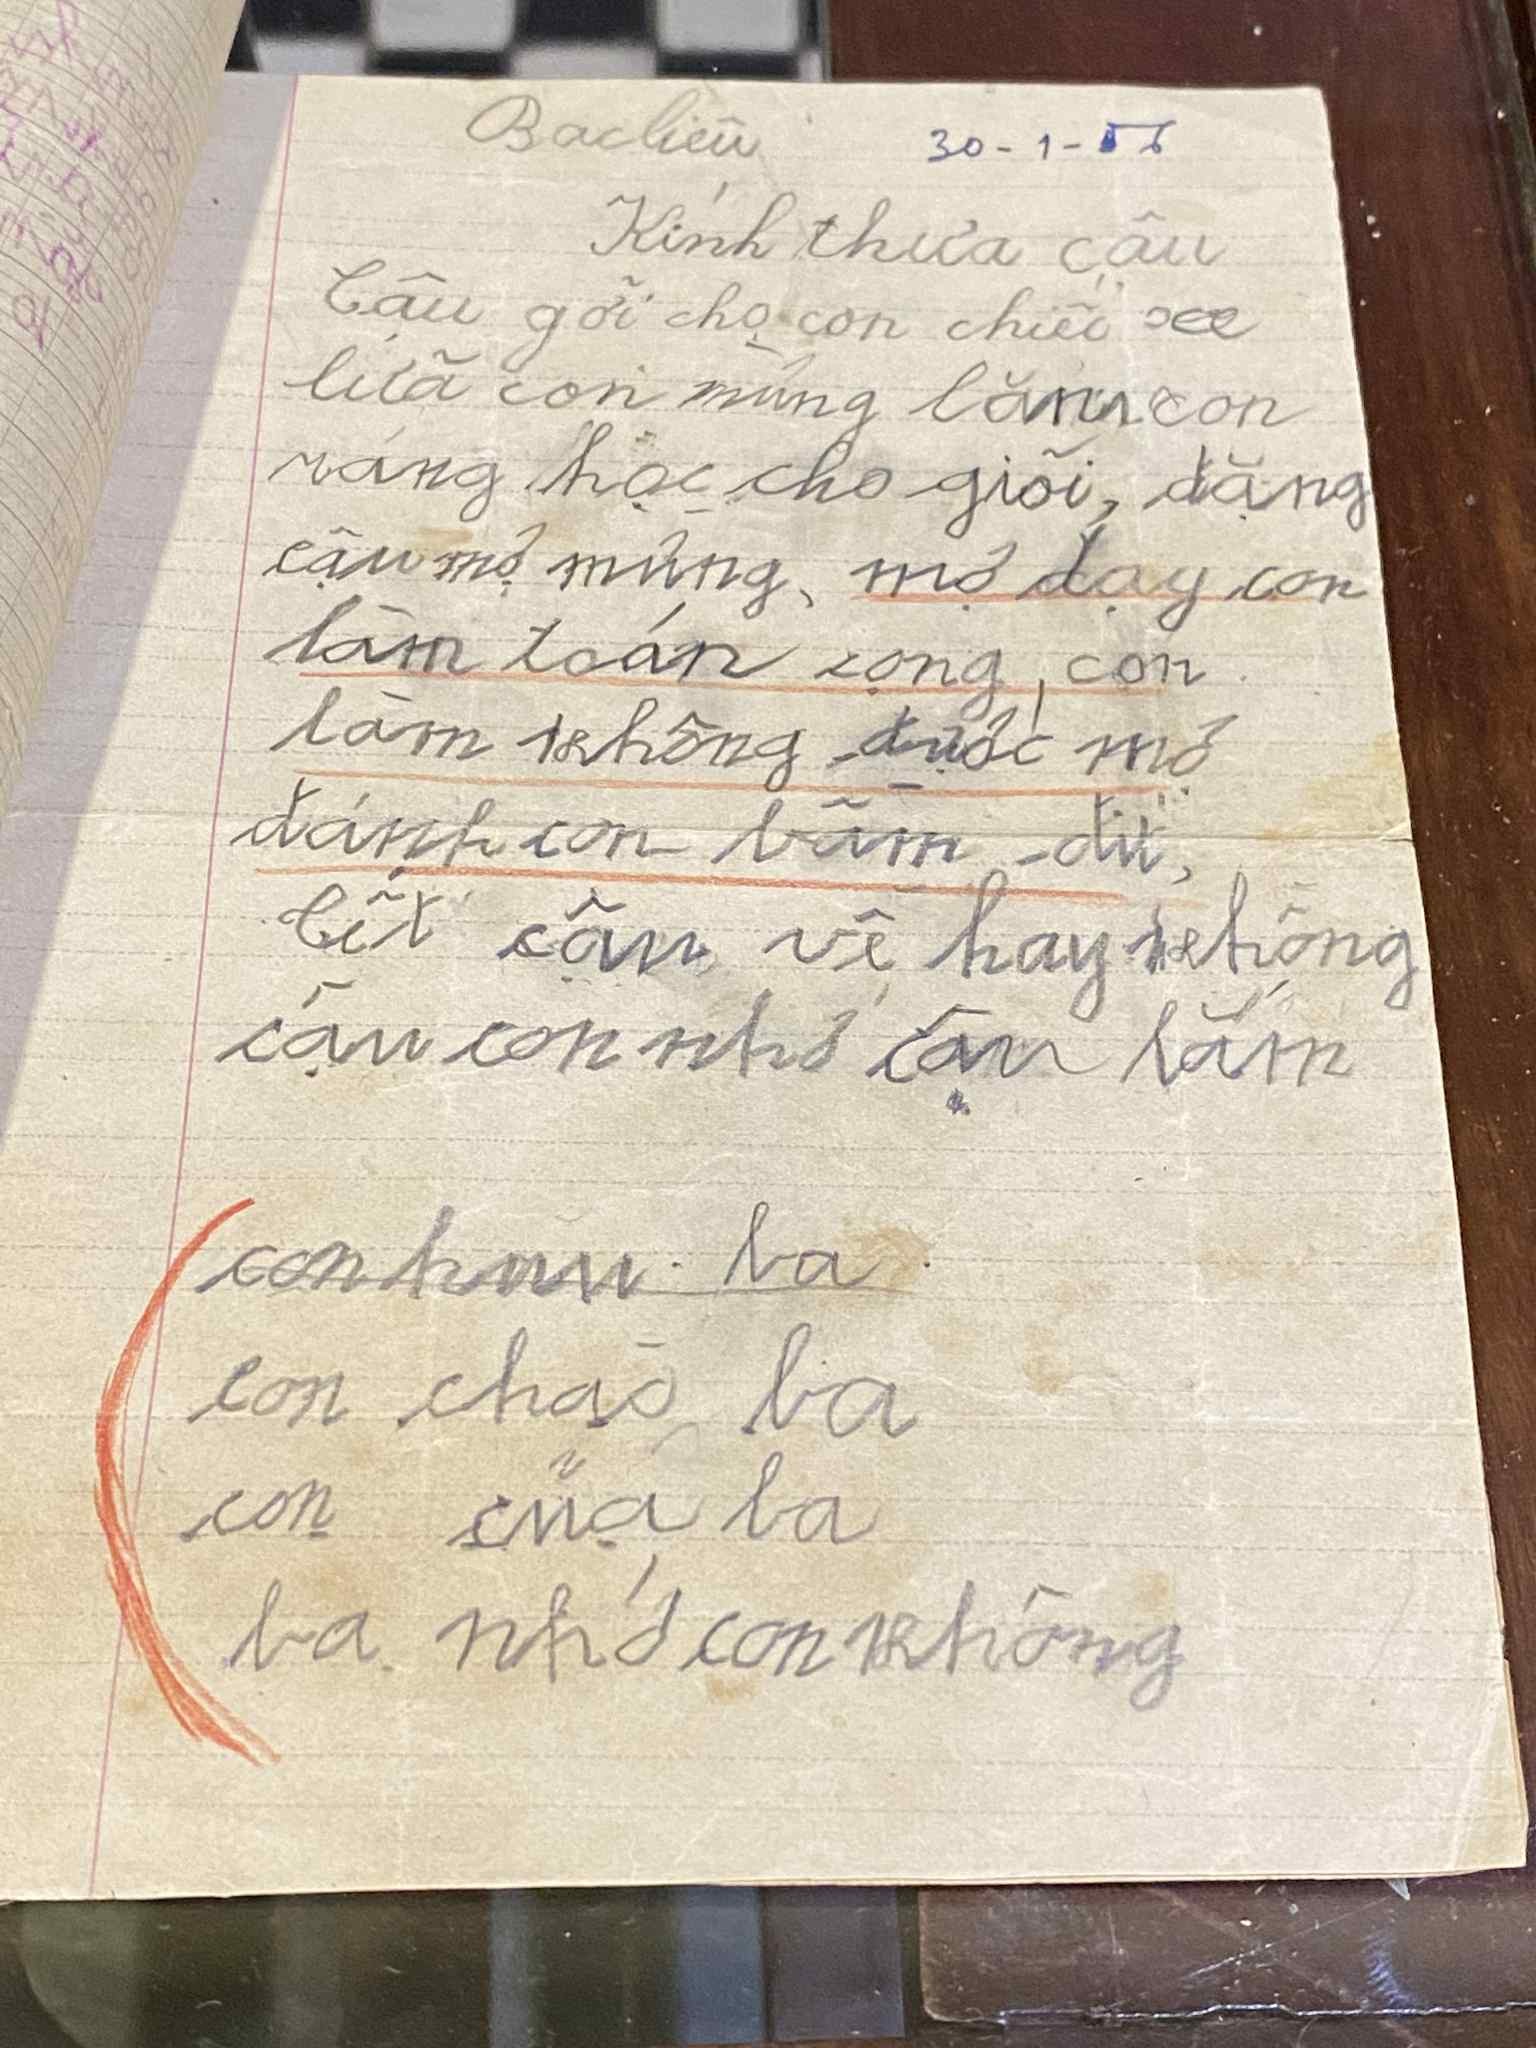 Baclieu 30-1-56
Kính thưa cậu
Cậu gởi cho con chiếc xe
lửa con mừng lắm con
ráng học cho giỏi, đặng
cậu mợ mừng, mợ dạy con
làm toán cọng, con
làm không được mợ
đánh con bầm đít,
Tết cậu về hay không
cậu con nhớ cậu lắm
con hun ba
con chào ba
con của ba
ba nhớ con không